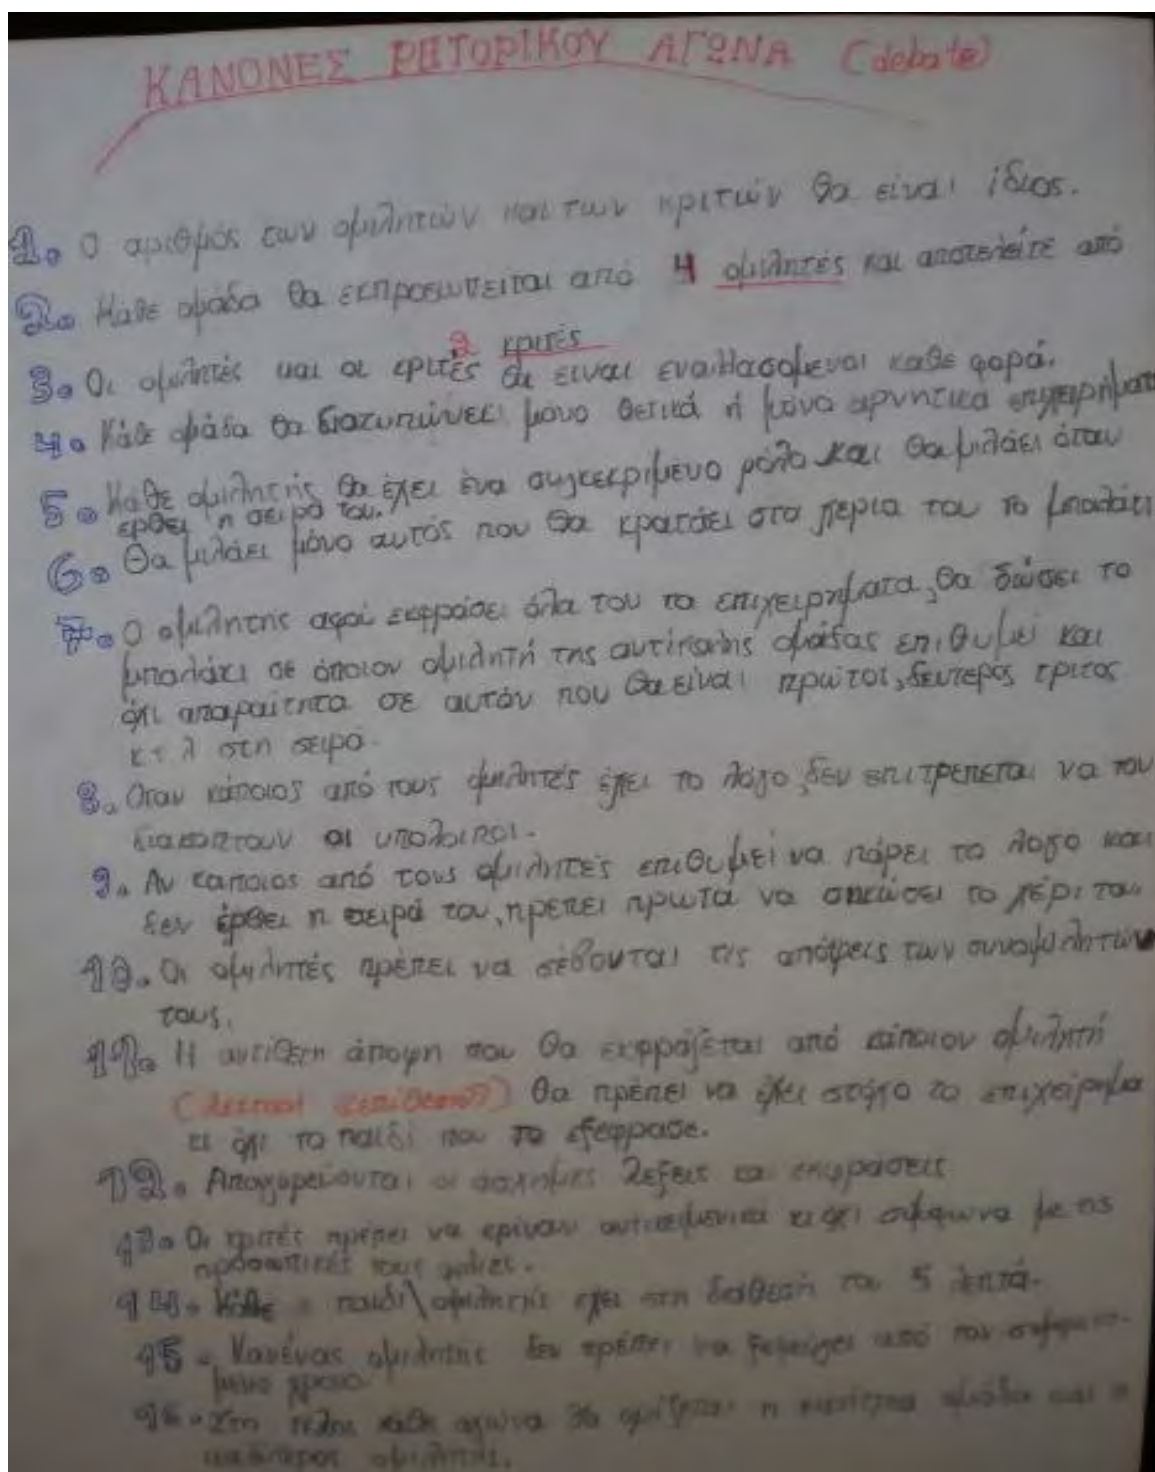 ΚΑΝΟΝΕΣ ΡΗΤΟΡΙΚΟΥ ΑΓΩΝΑ (debate)
1. Ο αριθμός των ομιλητών και των κριτών θα είναι ίδιος.
2. Κάθε ομάδα θα εκπροσωπείται από 4 ομιλητές και αποτελείτε από
2 κριτές
3. Οι ομιλητές και οι κριτές θα ειναι εναλλασομενοι καθε φορά.
4. Κάθε ομάδα θα διατυπώνει μόνο θετικά ή μόνο αρνητικά επιχειρήματα
5. Κάθε ομιλητής θα έχει ένα συγκεκριμένο ρόλο και θα μιλάει όταν
ερθει η σειρά του.
6. Θα μιλάει μόνο αυτός που θα κρατάει στα χερια του το μπαλάκι
7. Ο ομιλητής αφού εκφράσει όλα του τα επιχειρηματα, θα δώσει το
μπαλάκι σε όποιον ομιλητή της αντίπαλης ομάδας επιθυμεί και
όχι απαραίτητα σε αυτόν που θα είναι πρώτος, δευτερος τριτος
κ τ λ στη σειρά.
8. Όταν κάποιος από τους ομιλητές έχει το λόγο, δεν επιτρεπεται να τον
διακοπτουν οι υπολοιποι.
9. Αν καποιος από τους ομιλητές επιθυμεί να πάρει το λογο και
δεν έρθει η σειρά του, πρεπει πρωτα να σηκώσει το χέρι του.
10. Οι ομιλητές πρέπει να σέβονται τις απόψεις των συνομιλητών
τους.
11. Η αντίθετη άποψη που θα εκφράζεται από κάποιον ομιλητή
(λεκτική επίθεση) θα πρέπει να έχει στόχο το επιχείρημα
κι όχι το παιδί που το εξέφρασε.
12. Απαγορεύονται οι άσχημες λεξεις και εκφράσεις
13. Οι κριτές πρέπει να κρίνουν αντικειμενικά κι όχι σύμφωνα με τις
προσωπικές τους φιλίες.
14. Κάθε παιδί\ομιλητής εχει στη διάθεσή του 5 λεπτά.
15. Κανένας ομιλητής δεν πρέπει να ξεφεύγει από τον συμφωνη-
μενο χρονο.
16. Στο τέλος κάθε αγώνα θα ορίζεται η καλύτερη ομάδα και ο
καλύτερος ομιλητής.